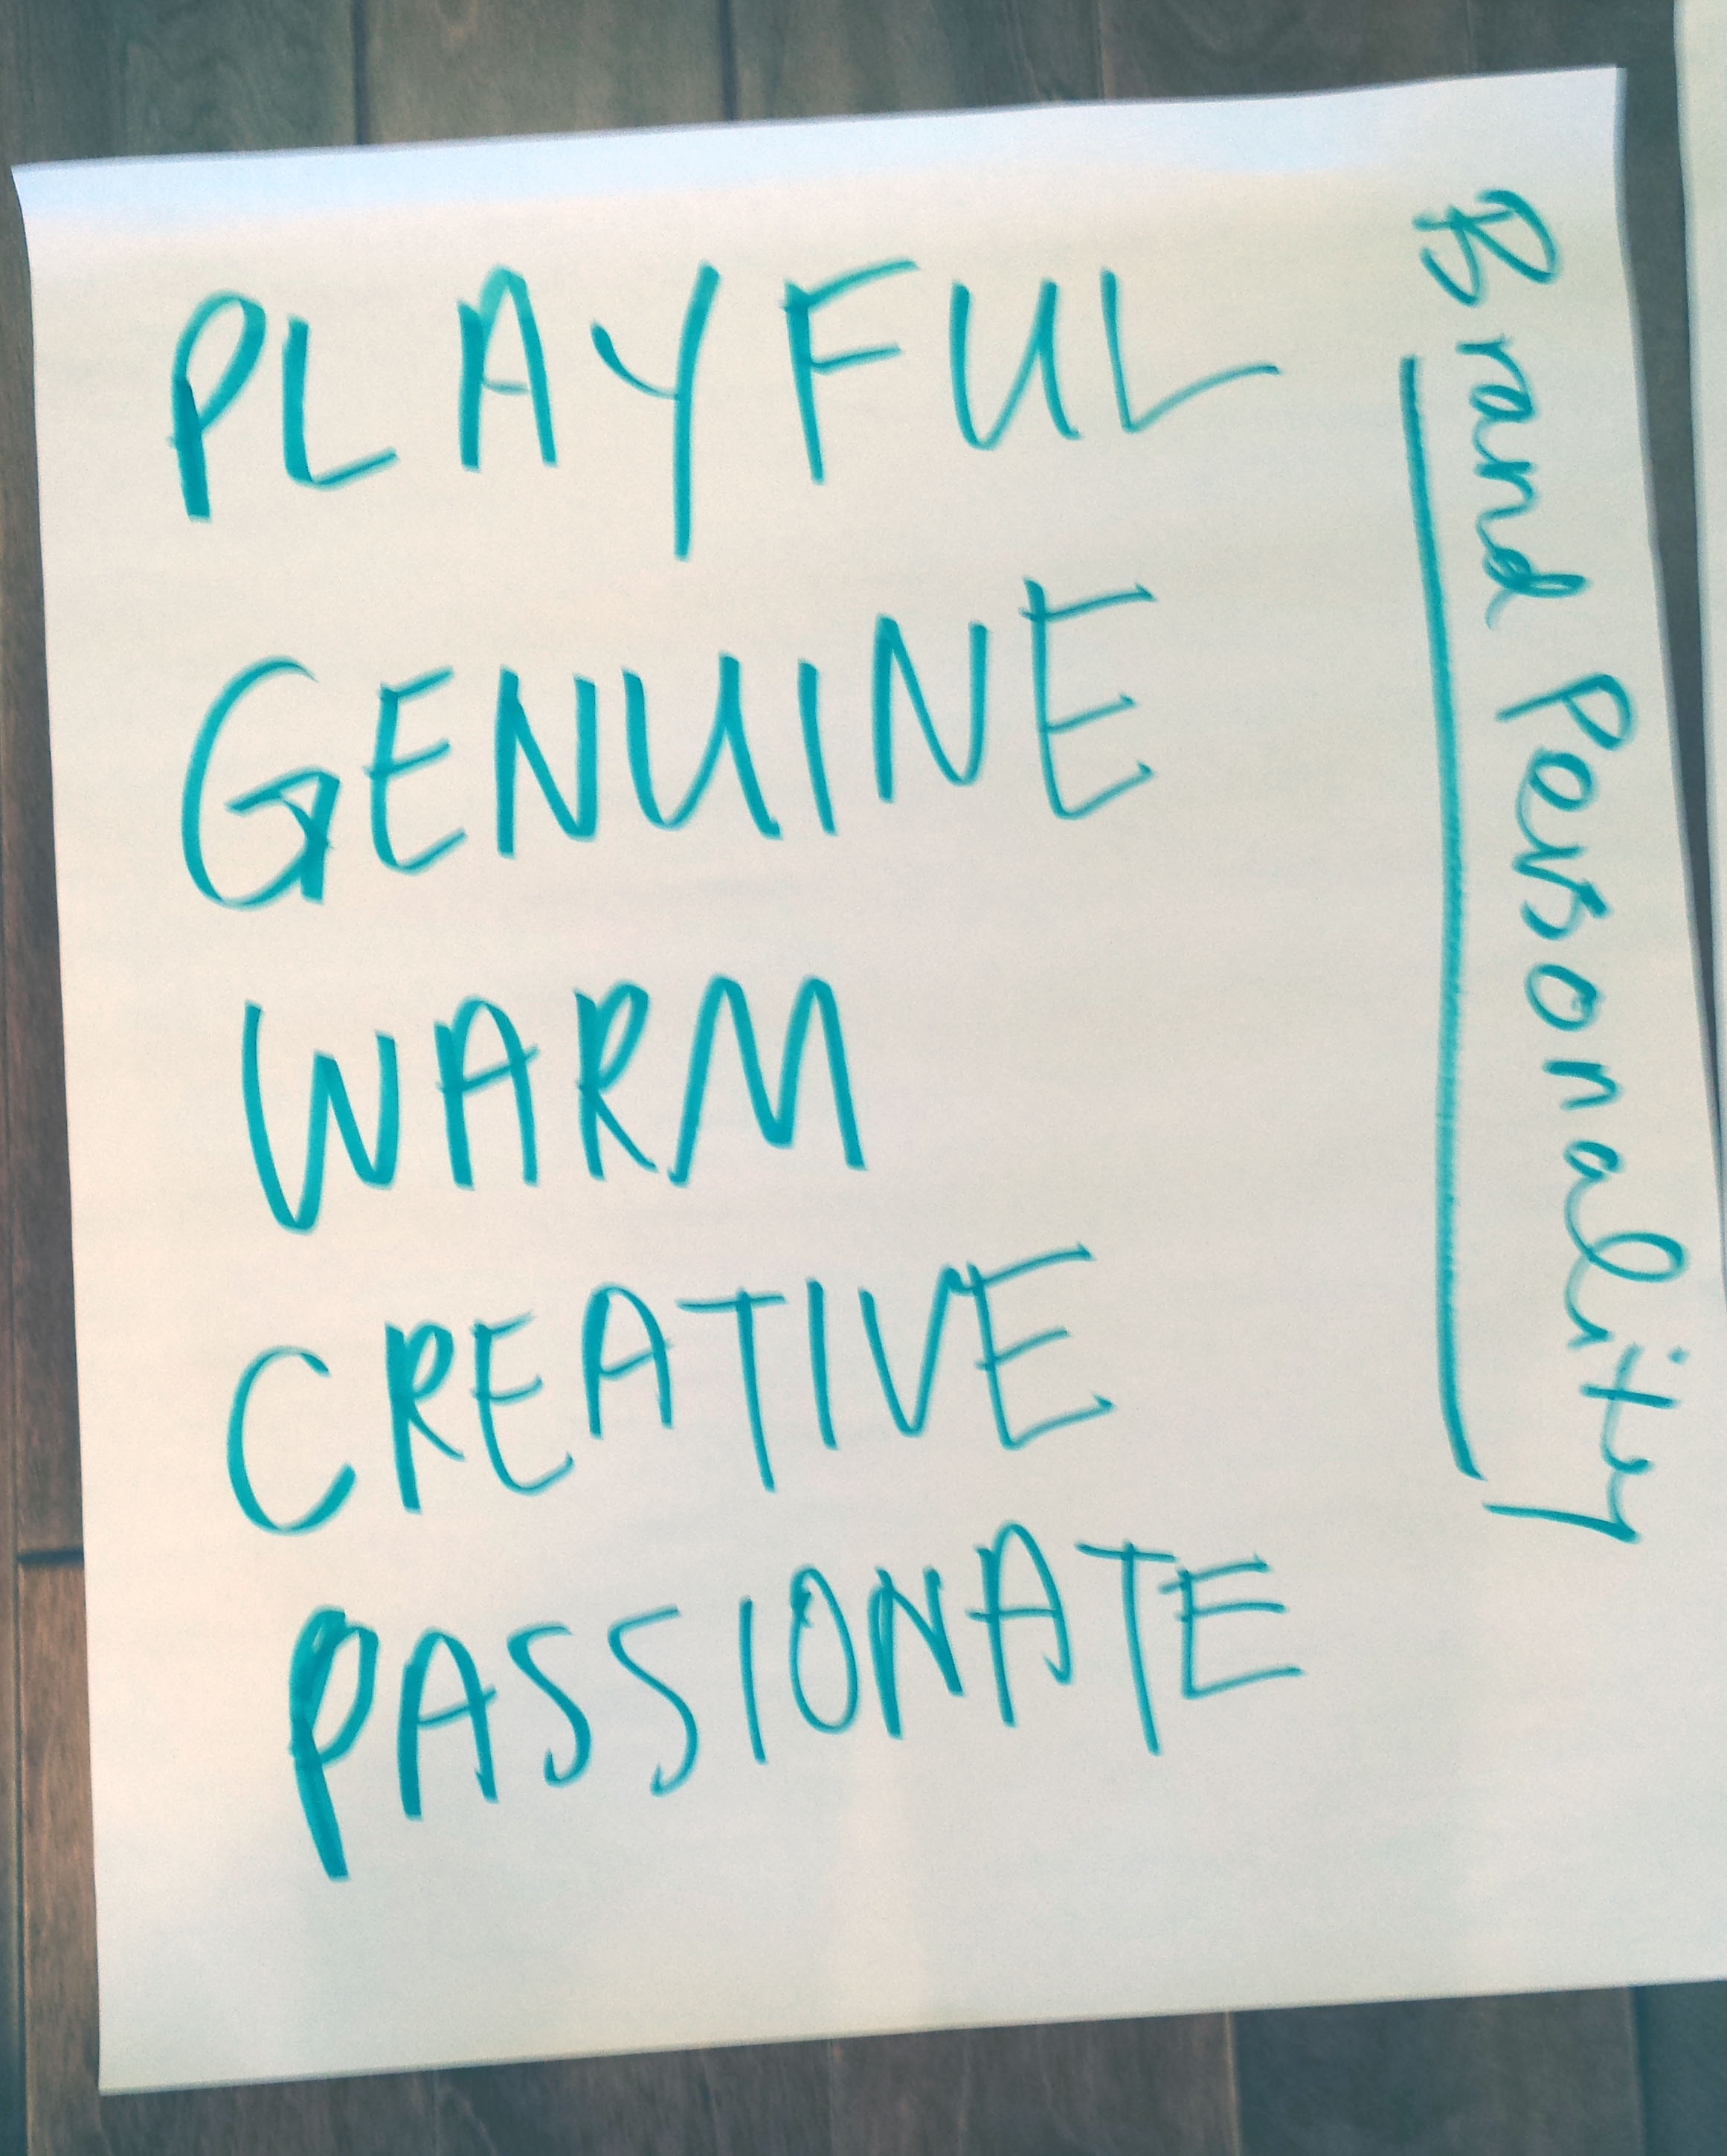 Brand Personality
PLAYFUL
GENUINE
WARM
CREATIVE
PASSIONATE